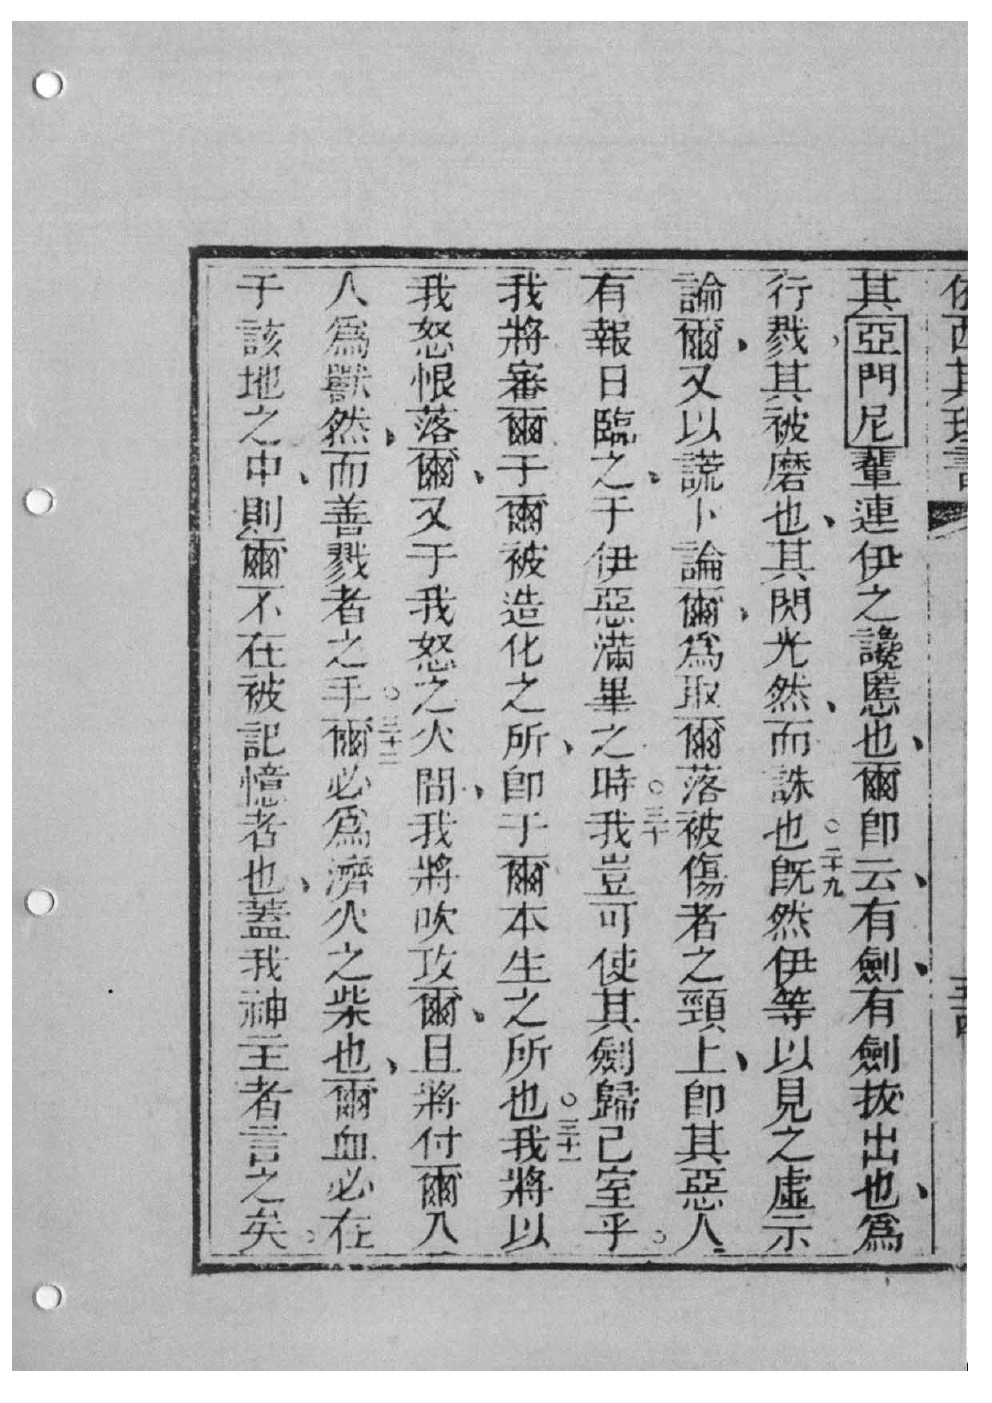 依西其理書 五十四
其亞門尼輩連伊之讒慝也、爾卽云、有劍、有劍拔出也、爲
行戮。其被磨也、其閃光然、而誅也○二十九旣然伊等以見之虛示
論爾、又以謊卜論爾、爲取爾落被傷者之頸上、卽其惡人
有報日臨之、于伊惡滿畢之時○三十我豈可使其劍歸己室乎。
我將審爾于爾被造化之所、卽于爾本生之所也○三十一我將以
我怒恨落爾、又于我怒之火間、我將吹攻爾、且將付爾入
人爲獸然、而善戮者之手○三十二爾必爲濟火之柴也、爾血必在
于該地之中、則爾不在被記憶者也、蓋我神主者言之矣。